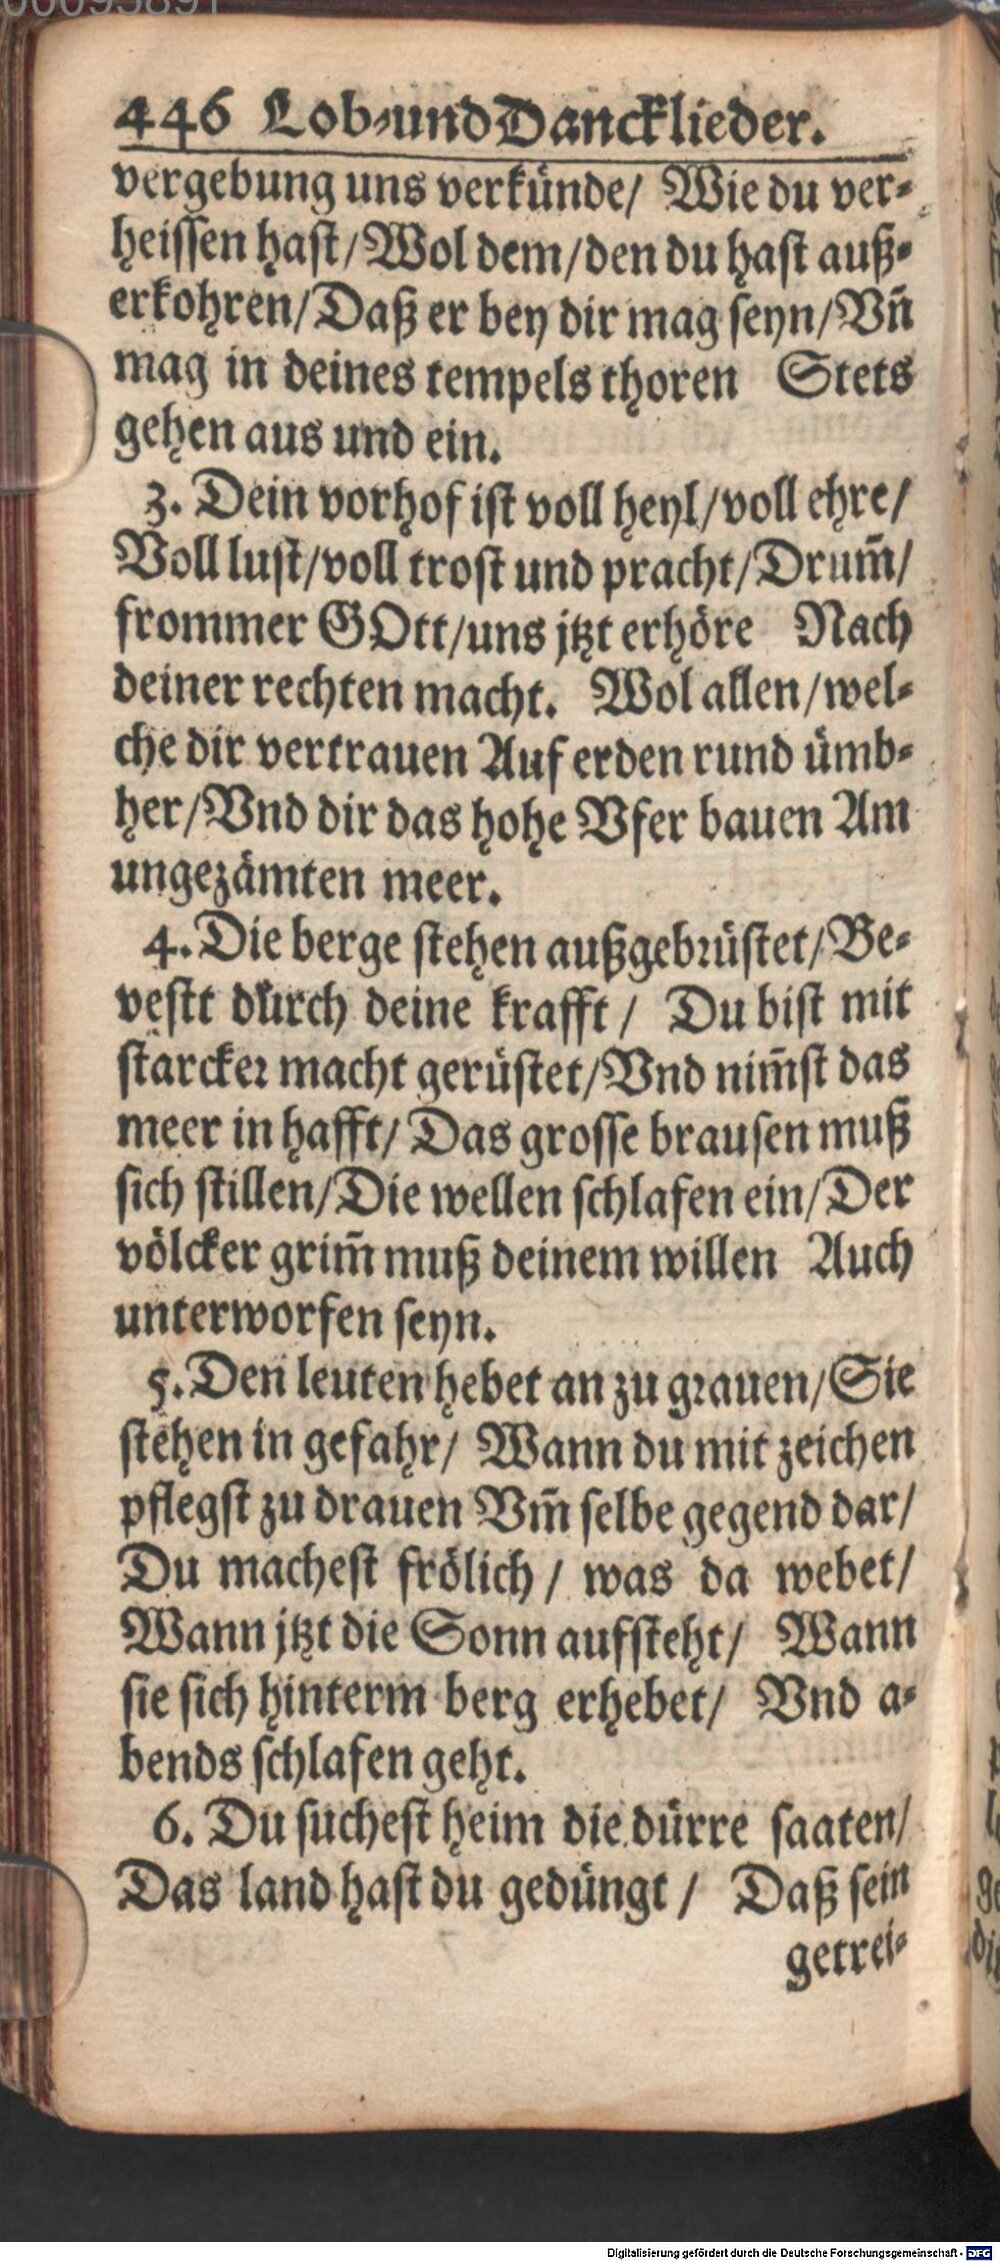 446 Lob-und Dancklieder.
vergebung uns verkünde/ Wie du ver-
heissen hast/Wol dem/den du hast auß-
erkohren/Daß er bey dir mag seyn/Vñ
mag in deines tempels thoren Stets
gehen aus und ein.
3. Dein vorhof ist voll heyl/voll ehre/
Voll lust/voll trost und pracht/Drum̃/
frommer GOtt/uns jtzt erhöre Nach
deiner rechten macht. Wol allen/wel-
che dir vertrauen Auf erden rund ümb-
her/Vnd dir das hohe Vfer bauen Am
ungezämten meer.
4. Die berge stehen außgebrüstet/Be-
vestt durch deine krafft/ Du bist mit
starcker macht gerüstet/Vnd nim̃st das
meer in hafft/Das grosse brausen muß
sich stillen/Die wellen schlafen ein/Der
völcker grim̃ muß deinem willen Auch
unterworfen seyn.
5. Den leuten hebet an zu grauen/Sie
stehen in gefahr/ Wann du mit zeichen
pflegst zu drauen Vm̃ selbe gegend dar/
Du machest frölich/ was da webet/
Wann jtzt die Sonn aufsteht/ Wann
sie sich hinterm berg erhebet/ Vnd a-
bends schlafen geht.
6. Du suchest heim die dürre saaten/
Das land hast du gedüngt/ Daß sein
getrei-
Digitalisierung gefördert durch die Deutsche Forschungsgemeinschaft - DFG